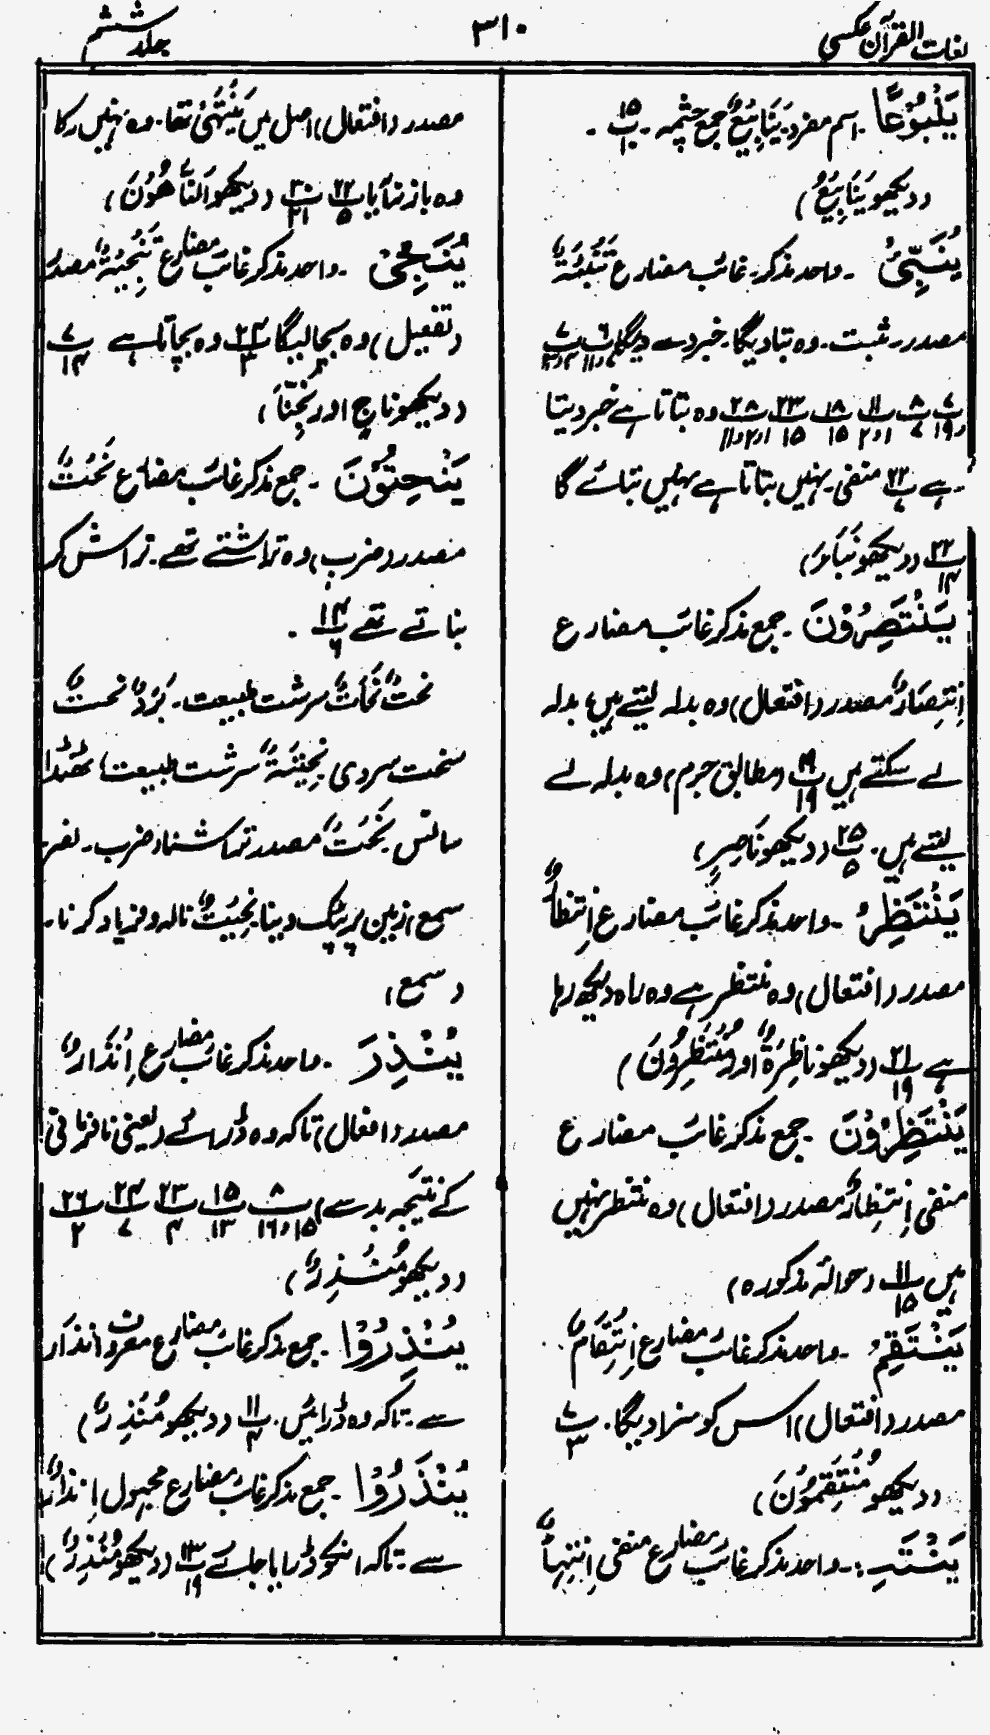 لغات القرآن عکسی
۳۱۰
جلد ششم
یَنْۢبُوْعًا۔ اسم مفرد۔ یَنَابِیْعُ جمع چشمہ۔ پ ۱۵/۱۰۔
(دیکھو یَنَابِیْعُ)
یُنَبِّئُ۔ واحد مذکر۔ غائب مضارع تَنْبِئَۃٌ
مصدر۔ مثبت۔ وہ بتادیگا۔ خبر دے دیگا
پ ۷/۱۹ پ ۸/۷ پ ۱۱/۱و۲ پ ۱۸/۱۵ پ ۲۳/۱۵ پ ۲۸/۱و۲و۱۱ وہ بتاتا ہے خبر دیتا
ہے پ ۲۲/۷ منفی۔ نہیں بتاتا ہے نہیں بتائے گا
پ ۲۲/۱۴ (دیکھو نَبَاءٌ)
یَنْتَصِرُوْنَ۔ جمع مذکر غائب مضارع
اِنْتِصَارٌ مصدر (افتعال) وہ بدلہ لیتے ہیں، بدلہ
لے سکتے ہیں پ ۱۹/۱۹ (مطابق جرم) وہ بدلہ لے
لیتے ہیں۔ پ ۲۵/۵ (دیکھو نَاصِرٍ)
یَنْتَظِرُ۔ واحد مذکر غائب مضارع اِنْتِظَارٌ
مصدر (افتعال) وہ منتظر ہے وہ راہ دیکھ رہا
ہے پ ۲۱/۱۹ (دیکھو نَاظِرَۃٌ اور مُنْتَظِرُوْنَ)
یَنْتَظِرُوْنَ۔ جمع مذکر غائب مضارع
منفی اِنْتِظَارٌ مصدر (افتعال) وہ منتظر نہیں
ہیں پ ۱۱/۱۵ (حوالہ مذکورہ)
یَنْتَقِمُ۔ واحد مذکر غائب مضارع اِنْتِقَامٌ
مصدر (افتعال) اس کو سزا دیگا۔ پ ۷/۳
(دیکھو مُنْتَقِمُوْنَ)
یَنْتَہِ:۔ واحد مذکر غائب مضارع منفی اِنْتِہَاءٌ
مصدر (افتعال) اصل میں یَنْتَہِیْ تھا۔ وہ نہیں رکا
وہ باز نہ آیا پ ۲۲/۵ پ ۳۰/۲۱ (دیکھو اَلنَّاھُوْنَ)
یُنَجِّیْ۔ واحد مذکر غائب مضارع تَنْجِیَۃٌ مصدر
(تفعیل) وہ بچالیگا پ ۲۴/۳ وہ بچاتا ہے پ ۷/۱۴
(دیکھو نَاجٍ اور نَجِّنَا)
یَنْحِتُوْنَ۔ جمع مذکر غائب مضارع نَحْتٌ
مصدر (ضرب) وہ تراشتے تھے۔ تراش کر
بناتے تھے پ ۱۴/۶۔
نَحْتٌ نُحَاتٌ سرشت طبیعت۔ بَرْدٌ نَحْتٌ
سخت سردی نَحِیْتَۃٌ سرشت طبیعت، ٹھنڈا
سانس۔ نَحْتٌ مصدر تراشنا (ضرب۔ نصر
سمع) زمین پر پٹک دینا نَحِیْتٌ نالہ و فریاد کرنا۔
(سمع)
یُنْذِرَ۔ واحد مذکر غائب مضارع اِنْذَارٌ
مصدر (افعال) تاکہ وہ ڈرائے (یعنی نافرمانی
کے نتیجہ بد سے) پ ۸/۱۵و۱۶ پ ۱۵/۱۳ پ ۲۳/۴ پ ۲۴/۷ پ ۲۶/۲
(دیکھو مُنْذِرٌ)
یُنْذِرُوْا۔ جمع مذکر غائب مضارع معروف اِنْذَار
سے۔ تاکہ وہ ڈرائیں۔ پ ۱۱/۴ (دیکھو مُنْذِرٌ)
یُنْذَرُوْا۔ جمع مذکر غائب مضارع مجہول اِنْذَارٌ
سے۔ تاکہ انکو ڈرایا جائے پ ۱۳/۱۹ (دیکھو مُنْذِرٌ)